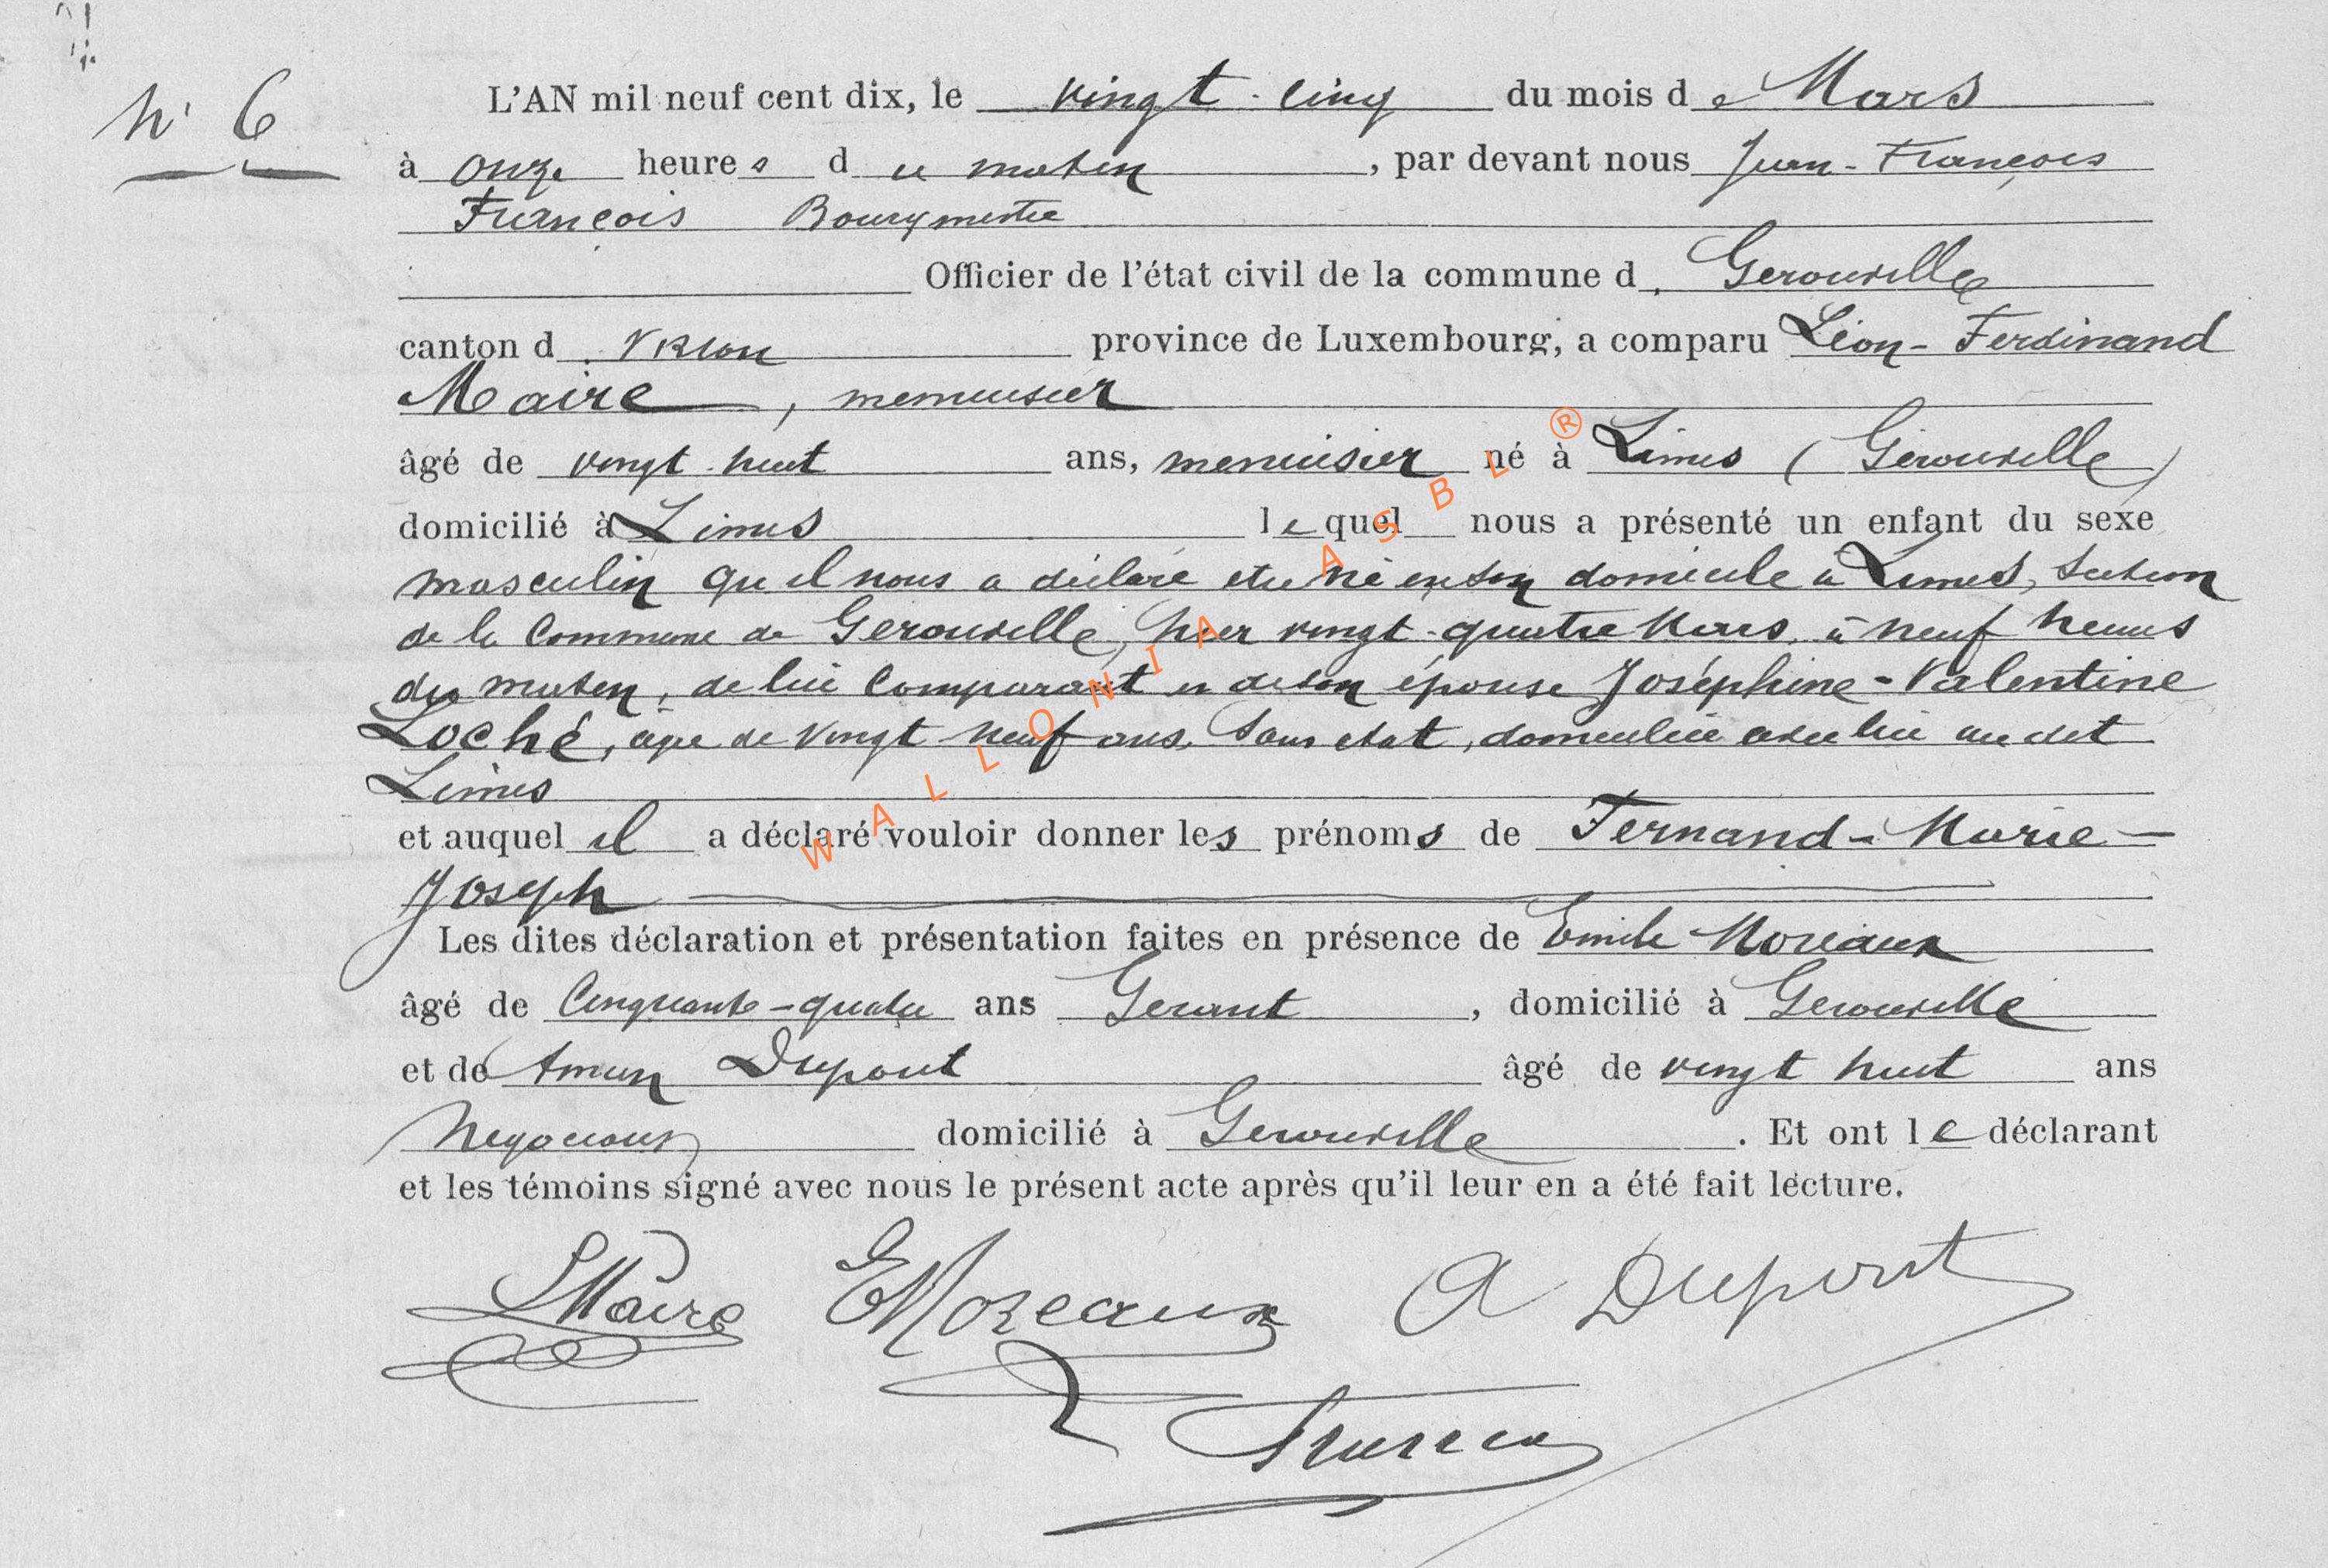 N° 6
L'AN mil neuf cent dix, le vingt-cinq du mois de Mars
à onze heures du matin, par devant nous Jean-François
François Bourgmestre
Officier de l'état civil de la commune d. Gerouville
canton d. Virton province de Luxembourg, a comparu Léon-Ferdinand
Maire, menuisier
âgé de vingt-huit ans, menuisier né à Limes (Gérouville)
domicilié à Limes lequel nous a présenté un enfant du sexe
masculin qu'il nous a déclaré être né en son domicile à Limes, section
de la Commune de Gerouville, hier vingt-quatre Mars, à neuf heures
du matin, de lui comparant et de son épouse Joséphine-Valentine
Loché, âgée de vingt-neuf ans, sans état, domiciliée avec lui au dit
Limes
et auquel il a déclaré vouloir donner les prénoms de Fernand-Marie-
Joseph
Les dites déclaration et présentation faites en présence de Emile Moreaux
âgé de Cinquante-quatre ans Gérant, domicilié à Gerouville
et de Dupont âgé de vingt huit ans
Négociant domicilié à Gerouville. Et ont le déclarant
et les témoins signé avec nous le présent acte après qu'il leur en a été fait lecture.
LMaire EMoreaux A Dupont
WALLONIA ASBL ®